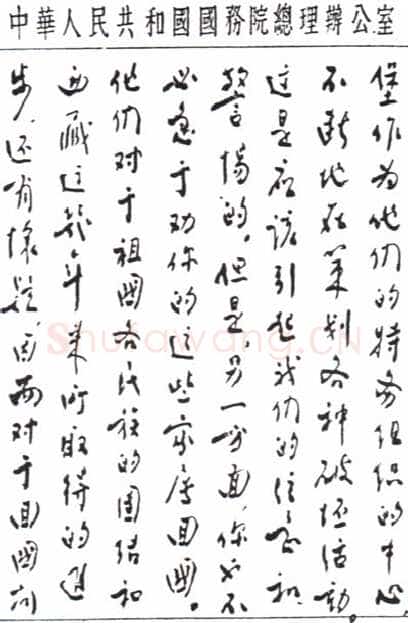 中華人民共和國國務院總理辦公室
堡作为他们的特务组织的中心,
不断地在策划各种破坏活动,
这是应该引起我们的注意和
警惕的。但是,另一方面,你也不
必急于劝你的这些家属回国。
他们对于祖国各民族的团结和
西藏这几年来所取得的进
步,还有怀疑,因而对于回国尚
Shufawang.CN